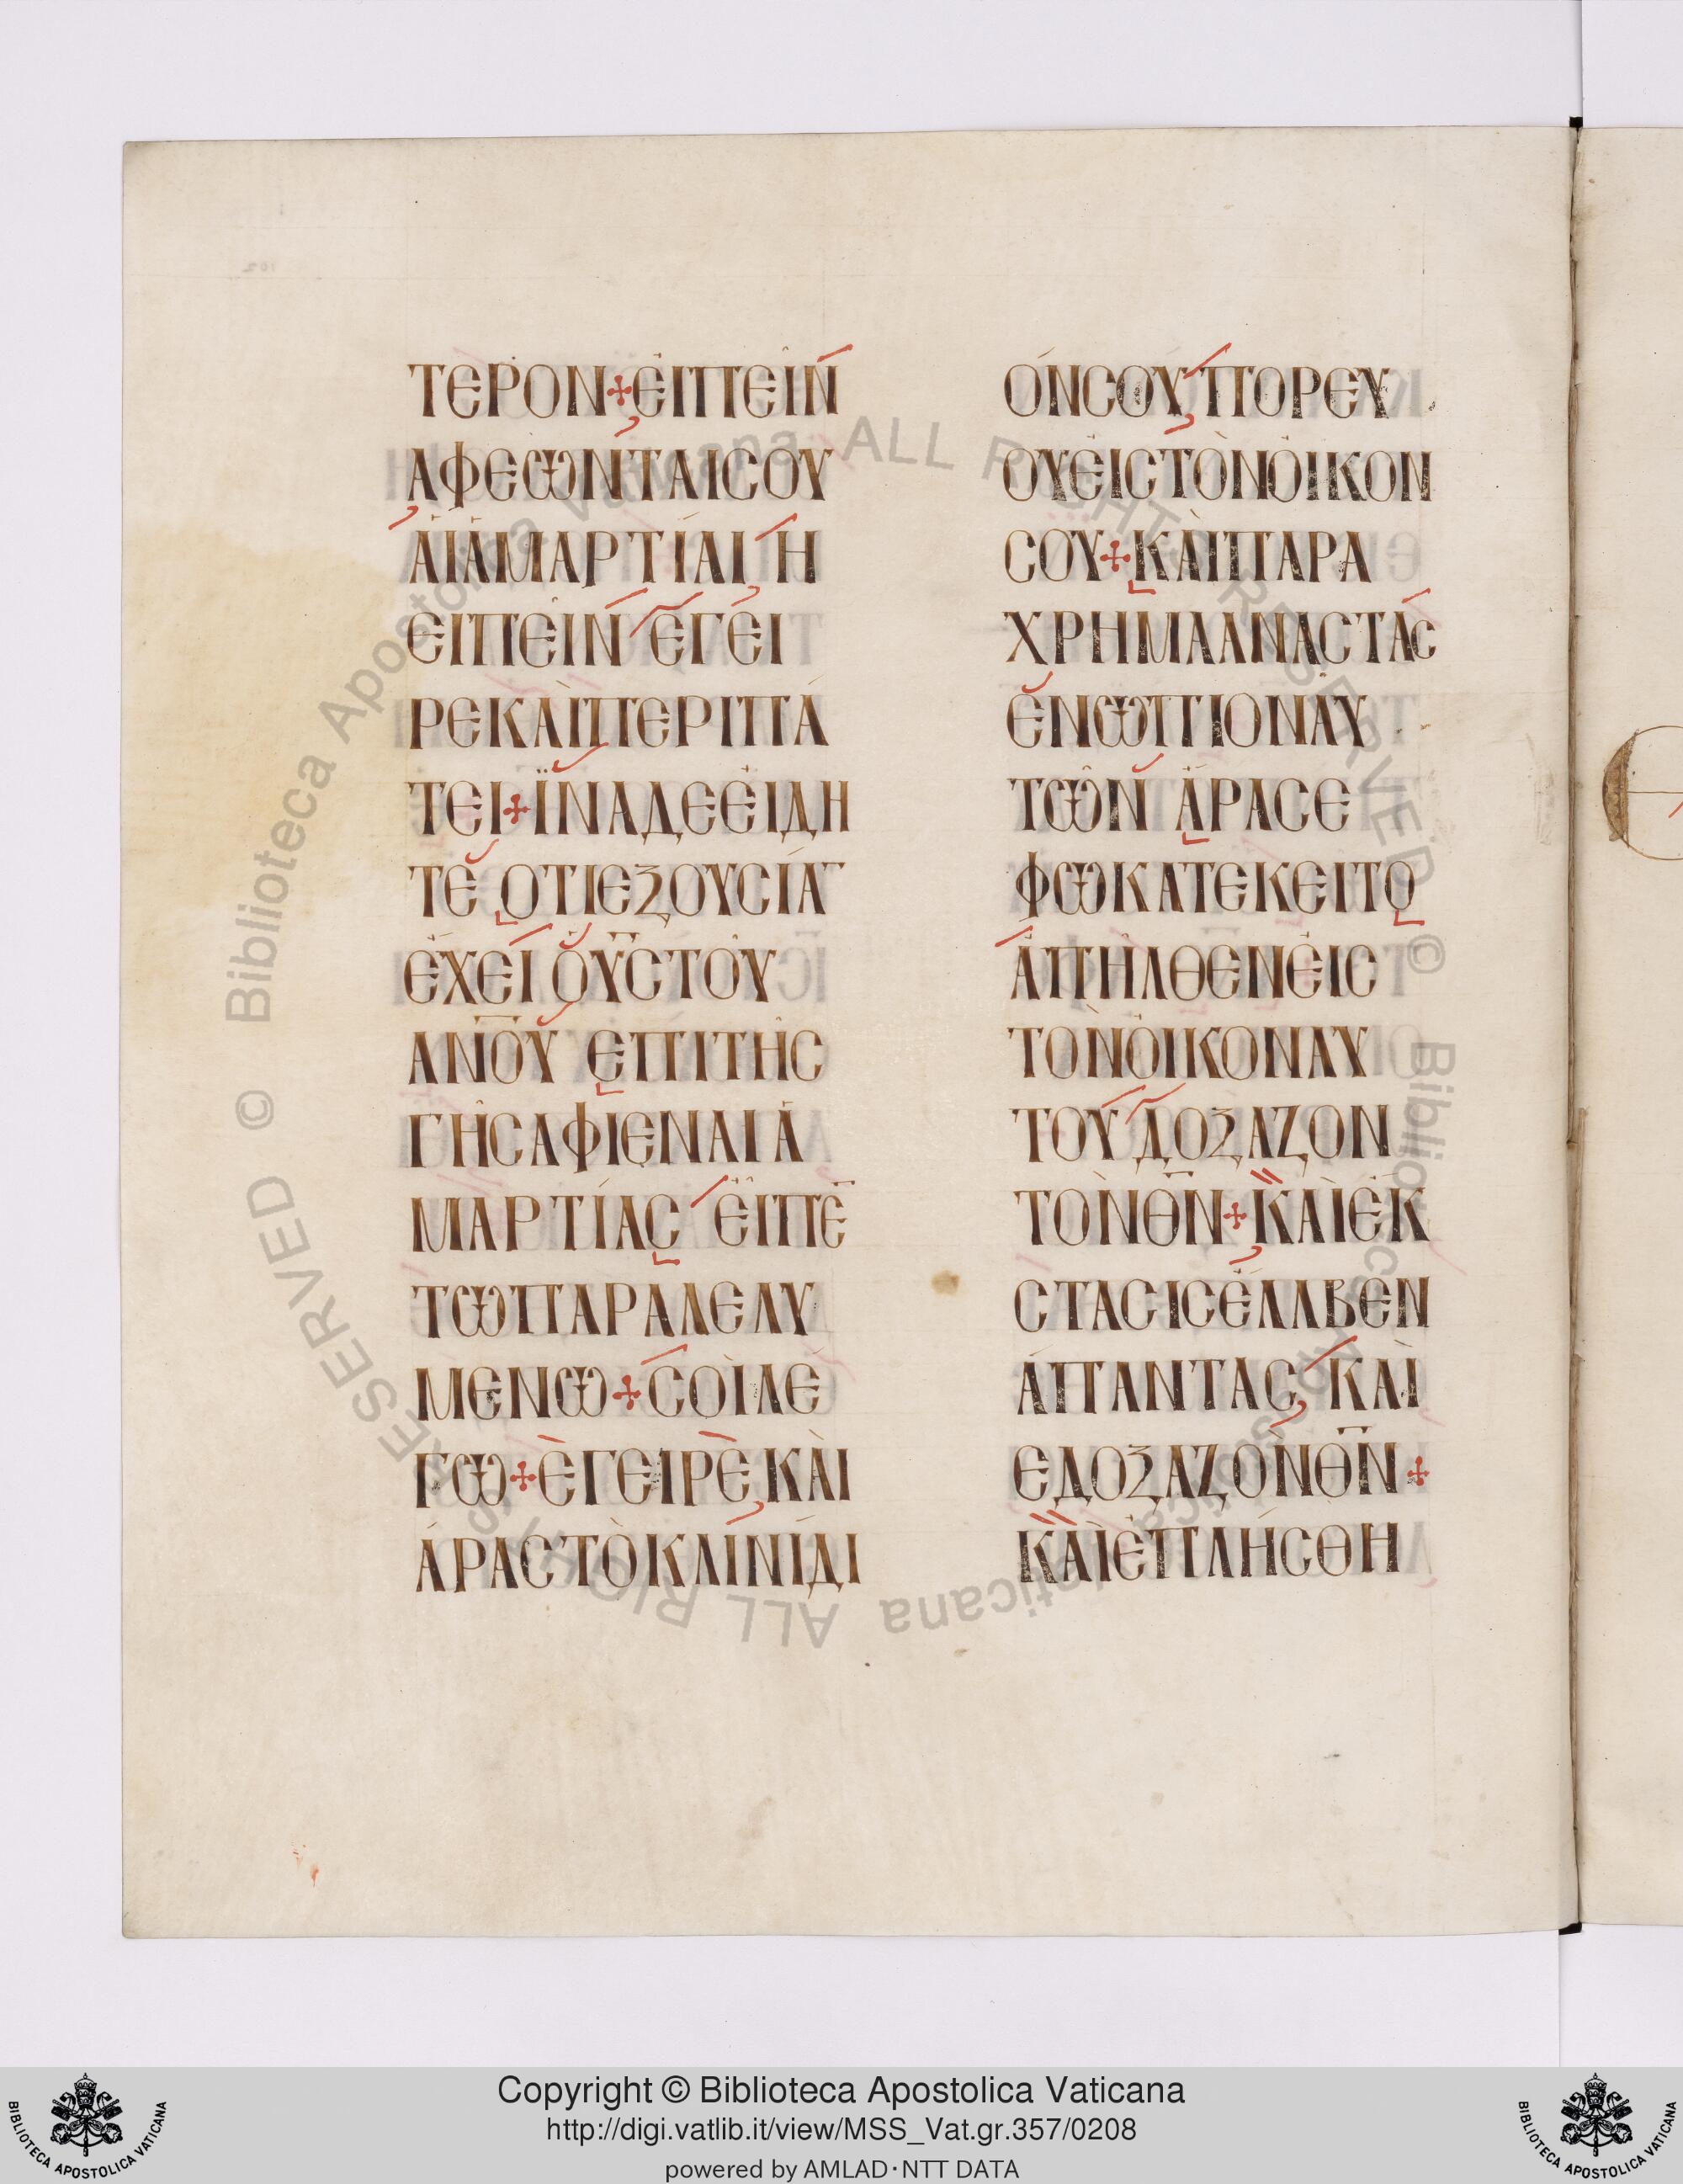 ΤΕΡΟΝ+ΕΙΠΕΙΝ
ΑΦΕΩΝΤΑΙϹΟΥ
ΑΙΑΜΑΡΤΙΑΙ Η
ΕΙΠΕΙΝ ΕΓΕΙ
ΡΕΚΑΙΠΕΡΙΠΑ
ΤΕΙ+ΪΝΑΔΕΕΙΔΗ
ΤΕ ΟΤΙΕΞΟΥϹΙΑ¯
ΕΧΕΙ ΟΥ̅Ϲ̅ΤΟΥ
ΑΝ̅Ο̅Υ ΕΠΙΤΗϹ
ΓΗϹΑΦΙΕΝΑΙΑ
ΜΑΡΤΙΑϹ ΕΙΠΕ̅
ΤΩΠΑΡΑΛΕΛΥ
ΜΕΝΩ+ϹΟΙΛΕ
ΓΩ+ΕΓΕΙΡΕΚΑΙ
ΑΡΑϹΤΟΚΛΙΝΙΔΙ
ΟΝϹΟΥ ΠΟΡΕΥ
ΟΥΕΙϹΤΟΝΟΙΚΟΝ
ϹΟΥ+ΚΑΙΠΑΡΑ
ΧΡΗΜΑΑΝΑϹΤΑϹ
ΕΝΩΠΙΟΝΑΥ
ΤΩΝ ΑΡΑϹΕ
ΦΩΚΑΤΕΚΕΙΤΟ
ΑΠΗΛΘΕΝΕΙϹ
ΤΟΝΟΙΚΟΝΑΥ
ΤΟΥ ΔΟΞΑΖΟΝ
ΤΟΝΘ̅Ν̅+ΚΑΙΕΚ
ϹΤΑϹΙϹΕΛΑΒΕΝ
ΑΠΑΝΤΑϹ ΚΑΙ
ΕΔΟΞΑΖΟΝΘ̅Ν̅+
ΚΑΙΕΠΛΗϹΘΗ
ALL RIGHTS RESERVED © Biblioteca Apostolica Vaticana
Copyright © Biblioteca Apostolica Vaticana
http://digi.vatlib.it/view/MSS_Vat.gr.357/0208
powered by AMLAD·NTT DATA
BIBLIOTECA APOSTOLICA VATICANA
BIBLIOTECA APOSTOLICA VATICANA